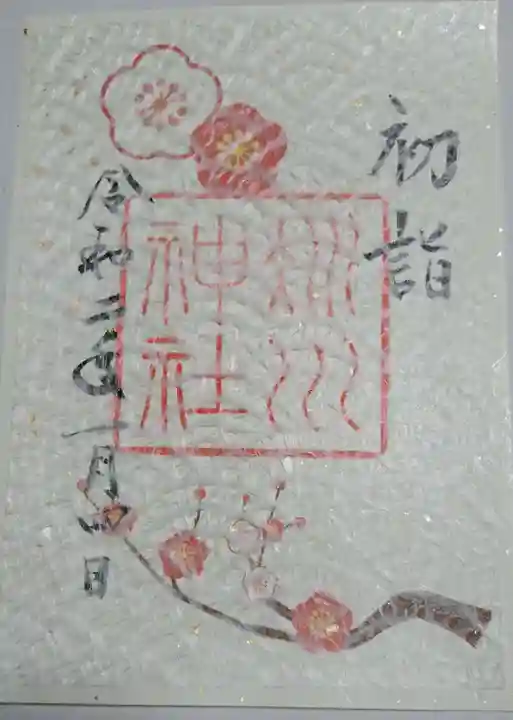 初詣
川
神社
令和二年一月四日